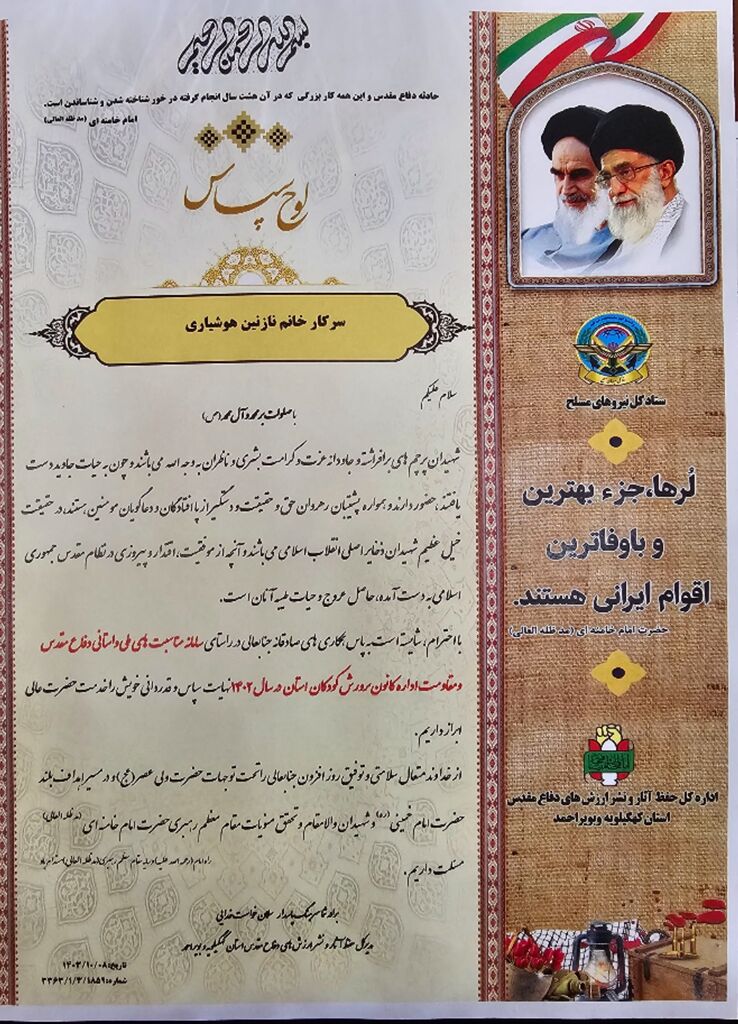 بسم الله الرحمن الرحیم
حادثه دفاع مقدس و این همه کار بزرگی که در آن هشت سال انجام گرفته در خور شناخته شدن و شناساندن است.
امام خامنه ای (مد ظله العالی)
لوح سپاس
سرکار خانم نازنین هوشیاری
سلام علیکم
با صلوات بر محمد و آل محمد (ص)
شهیدان پرچم های برافراشته و جاودانه عزت و کرامت بشری و ناظران به وجه الله می باشند و چون به حیات جاوید دست
یافتند، حضور دارند و همواره پشتیبان رهروان حق و حقیقت و دستگیر از پا افتادگان و دعاگویان مومنین هستند، در حقیقت
خیل عظیم شهیدان ذخایر اصلی انقلاب اسلامی می باشند و آنچه از موفقیت، اقتدار و پیروزی در نظام مقدس جمهوری
اسلامی به دست آمده، حاصل عروج و حیات طیبه آنان است.
با احترام، شایسته است به پاس همکاری های صادقانه جنابعالی در راستای سامانه مناسبت های ملی و استانی دفاع مقدس
و مقاومت اداره کانون پرورش کودکان استان در سال ۱۴۰۲ نهایت سپاس و قدردانی خویش را خدمت حضرت عالی
ابراز داریم.
از خداوند متعال سلامتی و توفیق روز افزون جنابعالی را تحت توجهات حضرت ولی عصر (عج) و در مسیر اهداف بلند
حضرت امام خمینی (ره) و شهیدان والامقام و تحقق منویات مقام معظم رهبری حضرت امام خامنه ای (مد ظله العالی)
مسئلت داریم.
راه امام (رحمه الله علیه) و سایه مقام معظم رهبری (مد ظله العالی) مستدام باد
برادر شما سرهنگ پاسدار
مدیرکل حفظ آثار و نشر ارزش های دفاع مقدس استان کهگیلویه و بویراحمد
تاریخ: ۱۴۰۳/۱۰/۰۸
شماره: ۳۳۶۳/۱/۳/۱۸۵۹
ستاد کل نیروهای مسلح
لُرها، جزء بهترین
و باوفاترین
اقوام ایرانی هستند.
حضرت امام خامنه ای (مد ظله العالی)
اداره کل حفظ آثار و نشر ارزش های دفاع مقدس
استان کهگیلویه و بویراحمد